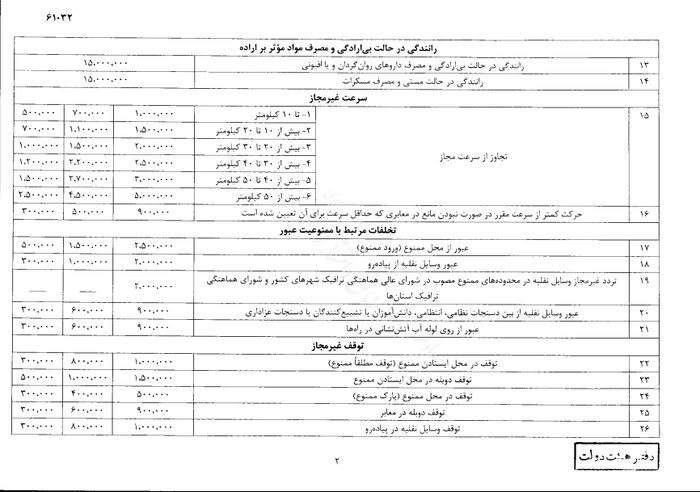 ۶۱۰۳۲
رانندگی در حالت بی‌ارادگی و مصرف مواد مؤثر بر اراده
۱۳ رانندگی در حالت بی‌ارادگی و مصرف داروهای روان‌گردان و یا افیونی ۱۵.۰۰۰.۰۰۰
۱۴ رانندگی در حالت مستی و مصرف مسکرات ۱۵.۰۰۰.۰۰۰
سرعت غیرمجاز
۱۵ تجاوز از سرعت مجاز
۱- تا ۱۰ کیلومتر ۱.۰۰۰.۰۰۰ ۷۰۰.۰۰۰ ۵۰۰.۰۰۰
۲- بیش از ۱۰ تا ۲۰ کیلومتر ۱.۵۰۰.۰۰۰ ۱.۱۰۰.۰۰۰ ۷۰۰.۰۰۰
۳- بیش از ۲۰ تا ۳۰ کیلومتر ۲.۰۰۰.۰۰۰ ۱.۵۰۰.۰۰۰ ۱.۰۰۰.۰۰۰
۴- بیش از ۳۰ تا ۴۰ کیلومتر ۲.۵۰۰.۰۰۰ ۲.۲۰۰.۰۰۰ ۱.۲۰۰.۰۰۰
۵- بیش از ۴۰ تا ۵۰ کیلومتر ۳.۰۰۰.۰۰۰ ۲.۷۰۰.۰۰۰ ۱.۵۰۰.۰۰۰
۶- بیش از ۵۰ کیلومتر ۵.۰۰۰.۰۰۰ ۴.۵۰۰.۰۰۰ ۲.۵۰۰.۰۰۰
۱۶ حرکت کمتر از سرعت مقرر در صورت نبودن مانع در معابری که حداقل سرعت برای آن تعیین شده است ۹۰۰.۰۰۰ ۵۰۰.۰۰۰ ۳۰۰.۰۰۰
تخلفات مرتبط با ممنوعیت عبور
۱۷ عبور از محل ممنوع (ورود ممنوع) ۲.۵۰۰.۰۰۰ ۱.۵۰۰.۰۰۰ ۵۰۰.۰۰۰
۱۸ عبور وسایل نقلیه از پیاده‌رو ۲.۰۰۰.۰۰۰ ۱.۰۰۰.۰۰۰ ۳۰۰.۰۰۰
۱۹ تردد غیرمجاز وسایل نقلیه در محدوده‌های ممنوع مصوب در شورای عالی هماهنگی ترافیک شهرهای کشور و شورای هماهنگی
ترافیک استان‌ها ۲.۰۰۰.۰۰۰ — —
۲۰ عبور وسایل نقلیه از بین دستجات نظامی، انتظامی، دانش‌آموزان یا تشییع‌کنندگان یا دستجات عزاداری ۹۰۰.۰۰۰ ۶۰۰.۰۰۰ ۳۰۰.۰۰۰
۲۱ عبور از روی لوله آب آتش‌نشانی در راه‌ها ۹۰۰.۰۰۰ ۶۰۰.۰۰۰ ۳۰۰.۰۰۰
توقف غیرمجاز
۲۲ توقف در محل ایستادن ممنوع (توقف مطلقاً ممنوع) ۱.۰۰۰.۰۰۰ ۸۰۰.۰۰۰ ۳۰۰.۰۰۰
۲۳ توقف دوبله در محل ایستادن ممنوع ۱.۵۰۰.۰۰۰ ۱.۰۰۰.۰۰۰ ۵۰۰.۰۰۰
۲۴ توقف در محل ممنوع (پارک ممنوع) ۵۰۰.۰۰۰ ۴۰۰.۰۰۰ ۳۰۰.۰۰۰
۲۵ توقف دوبله در معابر ۹۰۰.۰۰۰ ۶۰۰.۰۰۰ ۳۰۰.۰۰۰
۲۶ توقف وسایل نقلیه در پیاده‌رو ۱.۰۰۰.۰۰۰ ۸۰۰.۰۰۰ ۳۰۰.۰۰۰
۲
دفتر هیئت دولت